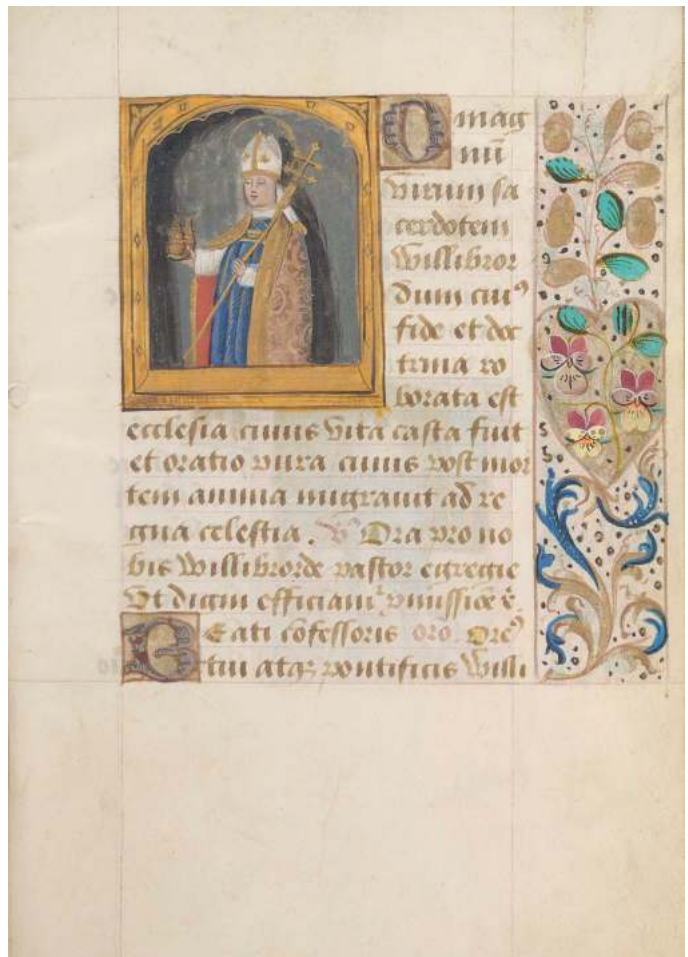 O mag
nu̅
virum sa
cerdotem
Willibror
dum cuiꝰ
fide et doc
trina ro
borata est
ecclesia cuius vita casta fuit
et oratio pura cuius post mor
tem anima migravit ad re
gna celestia. ℣ Ora pro no
bis Willibrorde pastor egregie
Ut digni efficiam
Eati co̅fessoris oro.
tui atqꝫ pontificis Willi